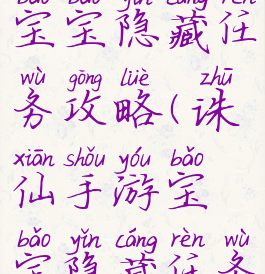 bǎo bǎo yǐn cáng rèn
宝宝隐藏任
wù gōng lüè zhū
务攻略(诛
xiān shǒu yóu bǎo
仙手游宝
bǎo yǐn cáng rèn wù
宝隐藏任务